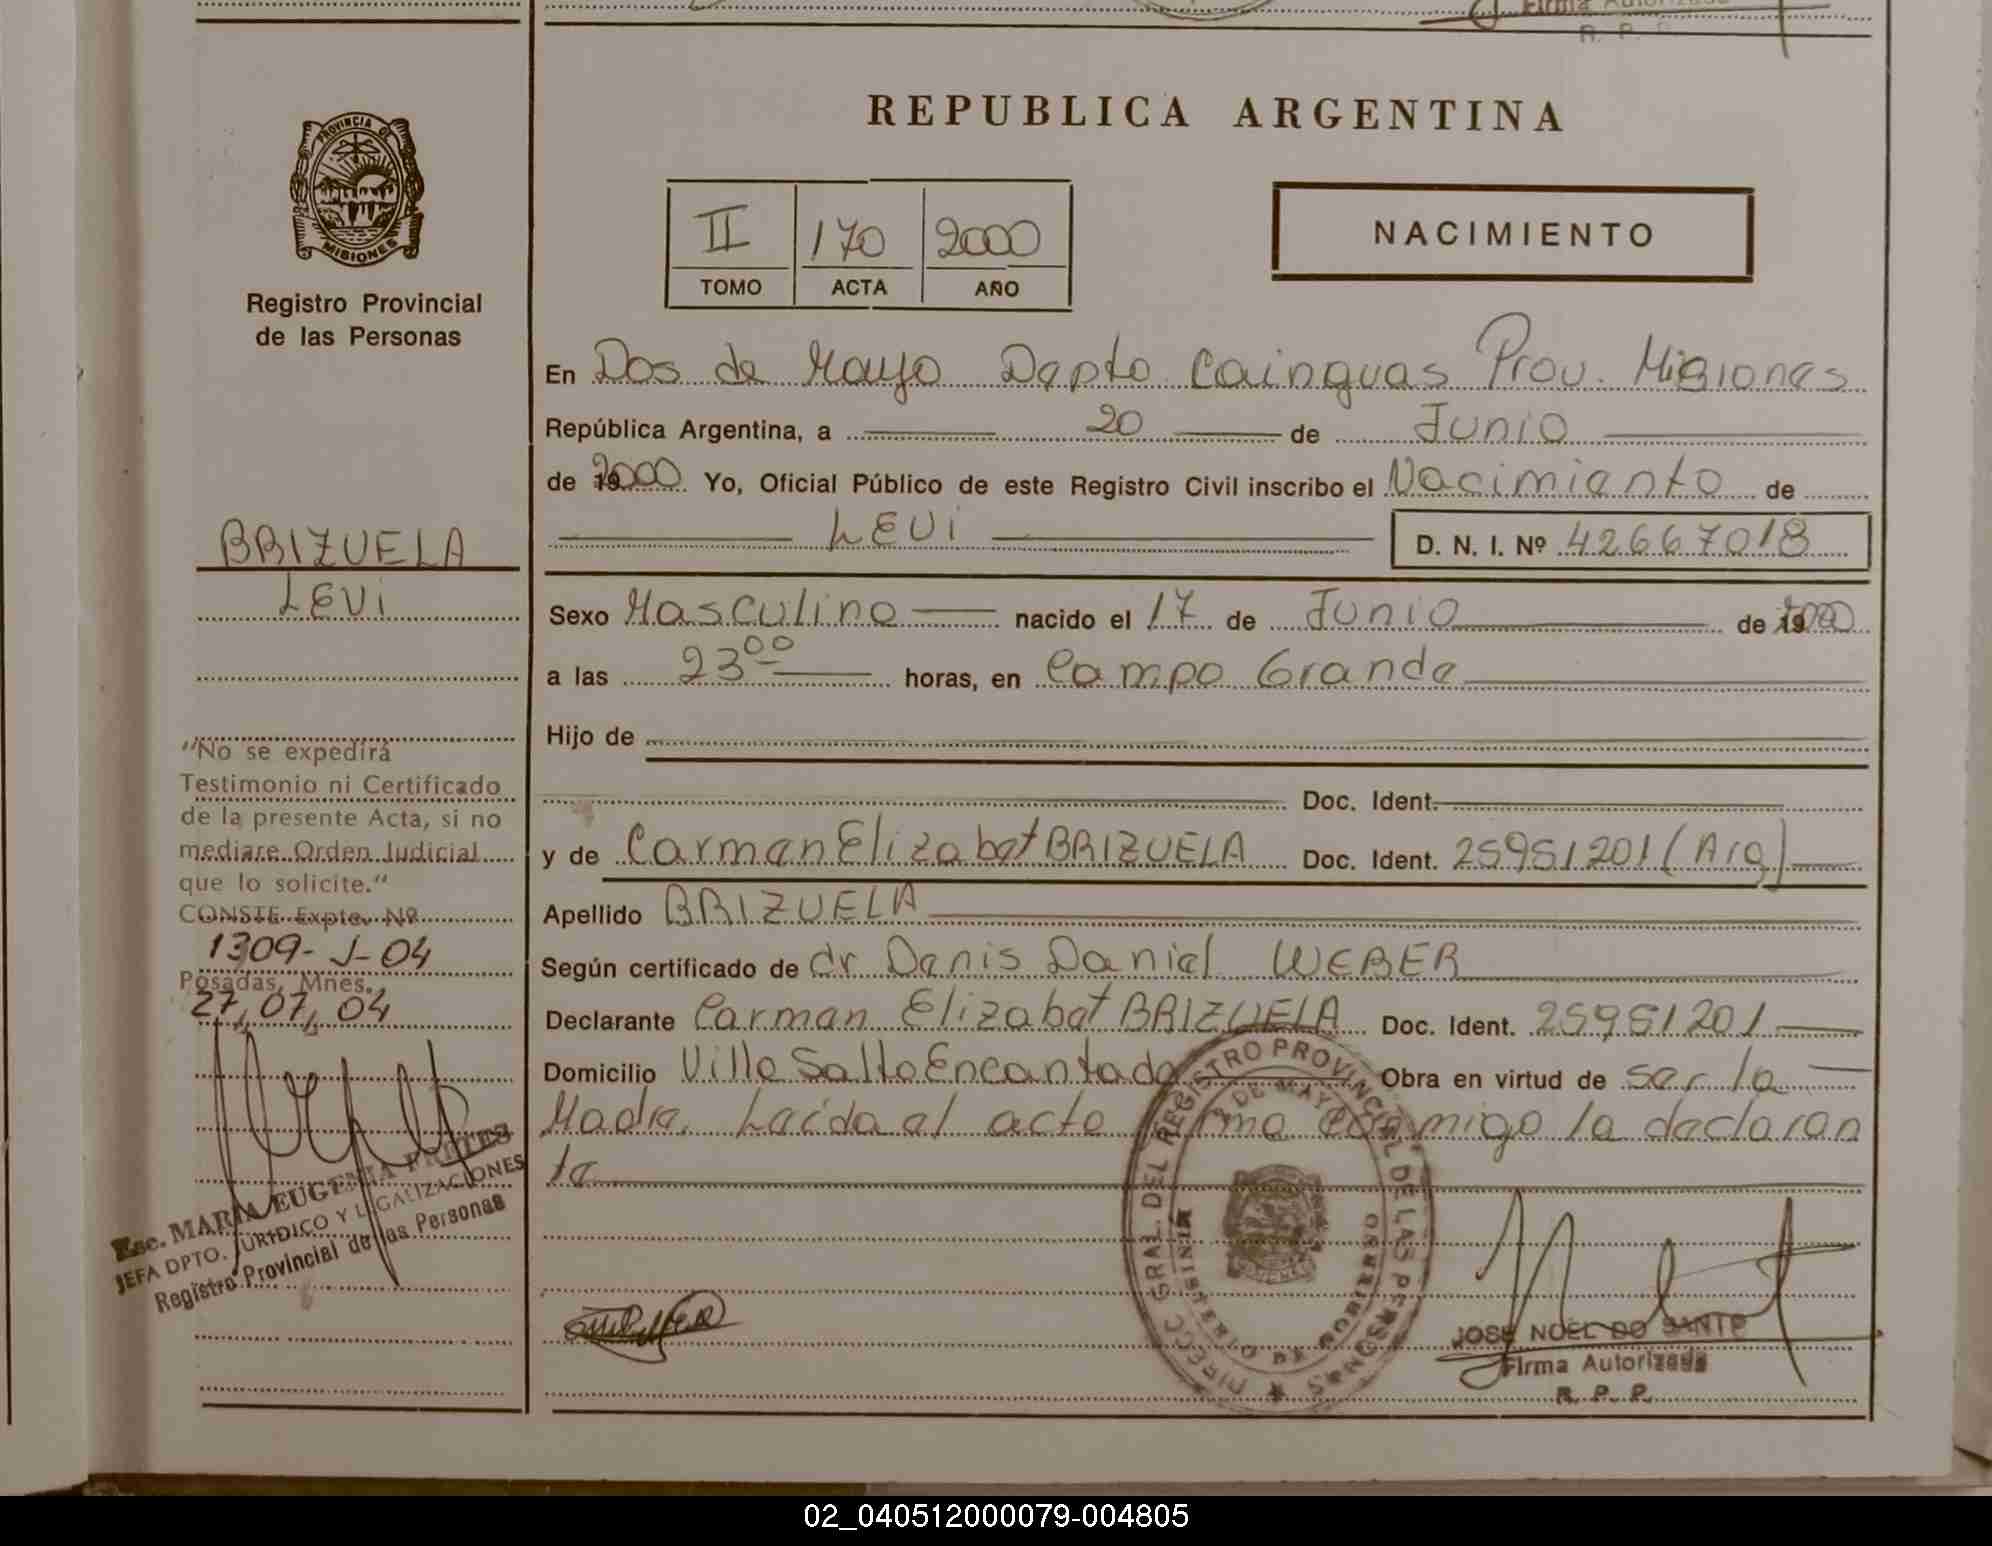 Firma Autorizada
R. P. P.
PROVINCIA DE
MISIONES
Registro Provincial
de las Personas
BRIZUELA
LEVI
"No se expedirá
Testimonio ni Certificado
de la presente Acta, si no
mediare Orden Judicial
que lo solicite."
CONSTE Expte. Nº
1309-J-04
Posadas, Mnes.
27, 07, 04
Esc. MARIA EUGENIA
JEFA DPTO. JURIDICO Y LEGALIZACIONES
Registro Provincial de las Personas
REPUBLICA ARGENTINA
II 170 2000
TOMO ACTA AÑO
NACIMIENTO
En Dos de Mayo Depto Cainguas Prov. Misiones
República Argentina, a 20 de Junio
de 2000 Yo, Oficial Público de este Registro Civil inscribo el Nacimiento de
LEVI D. N. I. Nº 42667018
Sexo Masculino nacido el 17 de Junio de 2000
a las 23⁰⁰ horas, en Campo Grande
Hijo de
Doc. Ident.
y de Carmen Elizabet BRIZUELA Doc. Ident. 25951201 (Arg)
Apellido BRIZUELA
Según certificado de dr Denis Daniel WEBER
Declarante Carmen Elizabet BRIZUELA Doc. Ident. 25951201
Domicilio Villa Salto Encantado Obra en virtud de ser la
Madre. Leída el acta firma conmigo la declaran
te
DIRECC GRAL. DEL REGISTRO PROVINCIAL DE LAS PERSONAS
2 DE MAYO
MINISTERIO DE GOBIERNO
JOSE NOEL DO SANTO
Firma Autorizada
R. P. P.
02_040512000079-004805